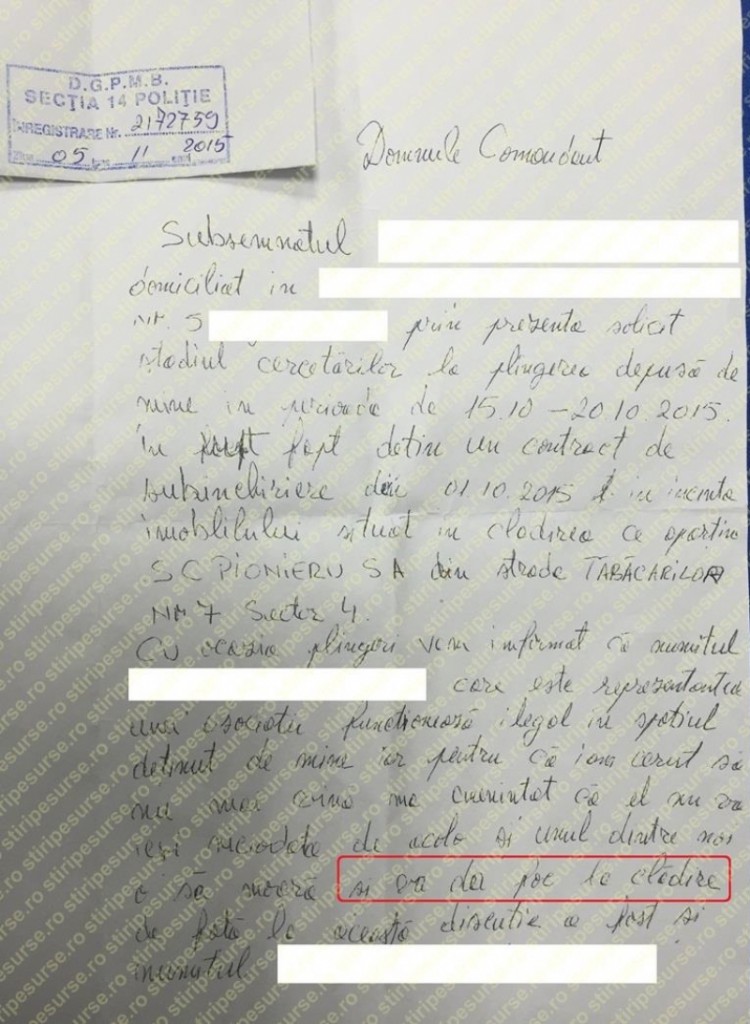 D.G.P.M.B.
SECȚIA 14 POLIȚIE
ÎNREGISTRARE Nr. 2172759
05 11 2015
Domnule Comandant
Subsemnatul
domiciliat in
NR. 5 prin prezenta solicit
stadiul cercetărilor la plîngerea depusă de
mine in perioada de 15.10 - 20.10.2015.
În fapt dețin un contract de
subinchiriere din 01.10.2015 in incinta
imobilului situat in cladirea ce aparține
SC PIONIERU SA din strada TABĂCARILOR
NR 7 Sector 4.
Cu ocazia plîngeri v-am informat că numitul
care este reprezentantul
unei asociatii funcționează ilegal in spațiul
deținut de mine iar pentru că i-am cerut să
nu mai vina ma amenintat că el nu va
ieși niciodata de acolo si unul dintre noi
o să moară si va da foc la clădire
de față la această discutie a fost si
numitul
stiripesurse.ro